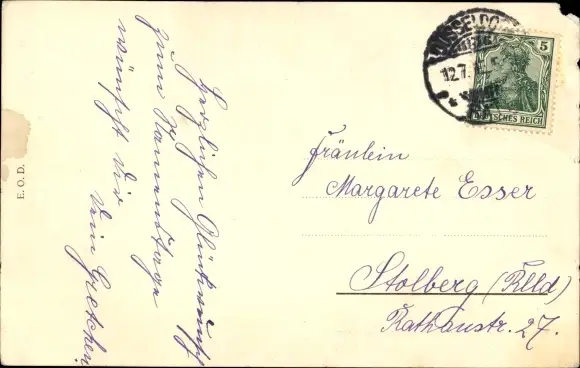 Herzlichen Glückwunsch
zum Namenstage
wünscht dir
dein Gretchen.
E.O.D.
DÜSSELDO
12.7.
5
DEUTSCHES REICH
Fräulein
Margarete Esser
Stolberg (Rlld)
Rathausstr. 27.